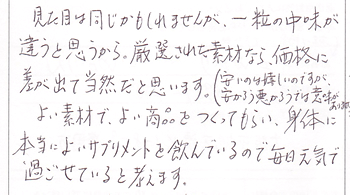 見た目は同じかもしれませんが、一粒の中味が
違うと思うから。厳選された素材なら、価格に
差が出て当然だと思います。(安いのは嬉しいのですが、
安かろう悪かろうでは意味が
よい素材で、よい商品をつくってもらい、身体に
本当によいサプリメントを飲んでいるので毎日元気で
過ごせていると考えます。